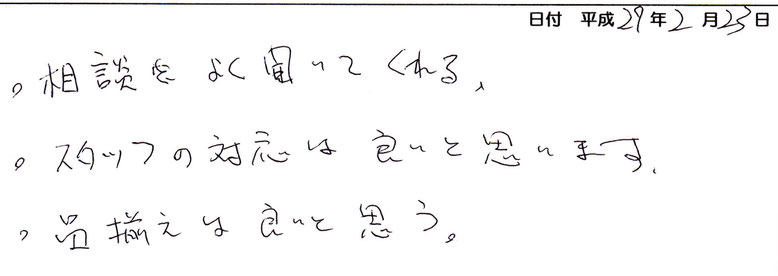 日付 平成29年2月23日
。相談をよく聞いてくれる、
。スタッフの対応は良いと思います、
。品揃えは良いと思う。